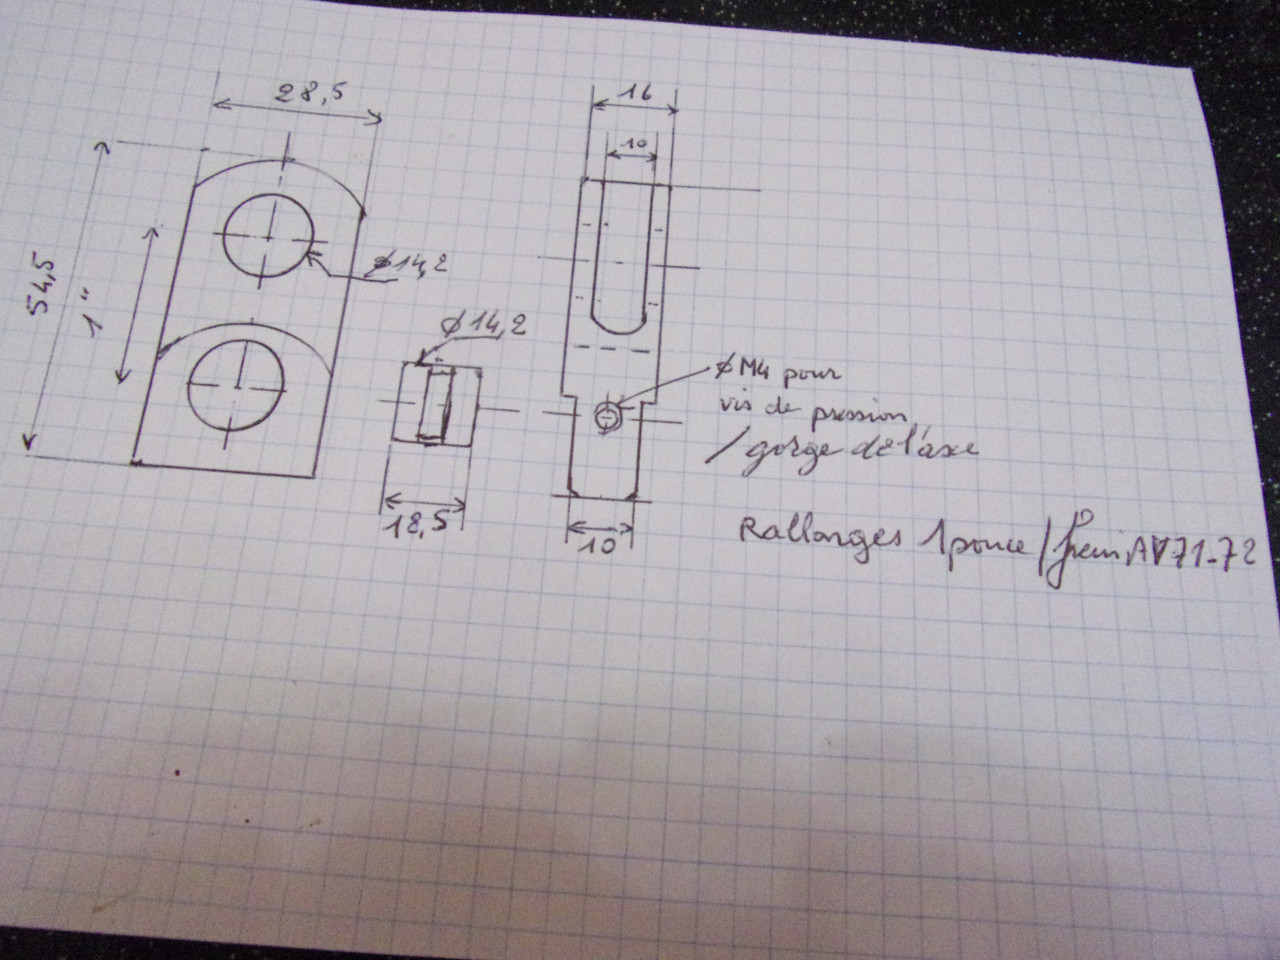 28,5
16
10
54,5
1"
ø14,2
ø14,2
øM4 pour
vis de pression
/ gorge de l'axe
18,5
10
Rallonges 1 pouce / frein AV 71-72